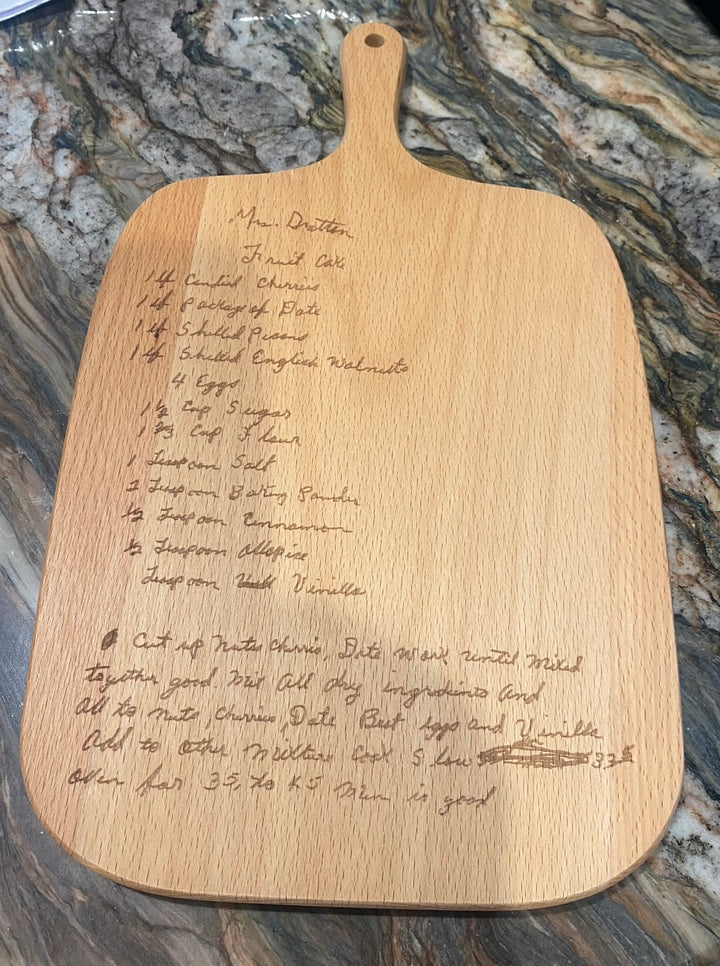 Mrs. Dratten
Fruit Cake
1 lb Candied Cherries
1 lb Package of Date
1 lb Shelled Pecans
1 lb Shelled English Walnutts
4 Eggs
1 1/2 Cup Sugar
1 2/3 Cup Flour
1 Teaspoon Salt
2 Teaspoon Baking Powder
1/2 Teaspoon Cinnamon
1/2 Teaspoon Allspice
Teaspoon Vinilla
Cut up nuts cherries, Date work until mixed
together good. Mix all dry ingredients and
All to nuts, cherries, Date Beat eggs and Vinilla
Add to other mixture Cook Slow
oven for 35, to 45 Min is good